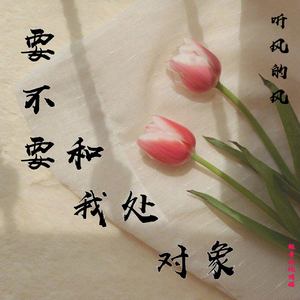 要不要
和
我处
对象
听风的风